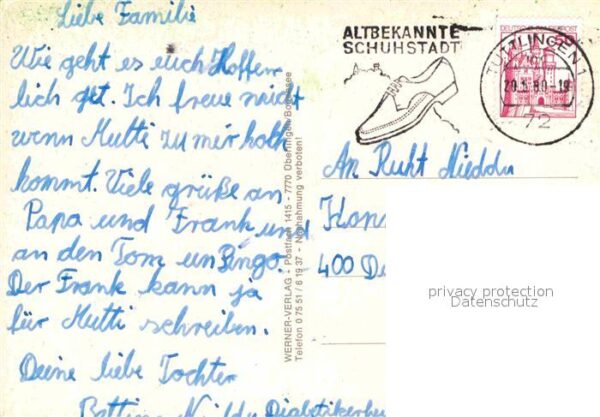 Liebe Familie
Wie geht es euch Hoffen
lich get. Ich freue micht
wenn Mutti zu mir hoth
kommt. Viele grüße an
Papa und Frank und
an den Tom un Bingo.
Der Frank kann ja
für Mutti schreiben.
Deine liebe Tochter
Diabetikerhe
WERNER-VERLAG - Postfach 1415 - 7770 Überlingen Bodensee
Telefon 0 75 51 / 6 19 37 - Nachahmung verboten!
ALTBEKANNTE
SCHUHSTADT
TUTTLINGEN 1
20.5.80-19
72
An Ruht Nieddu
400
privacy protection
Datenschutz